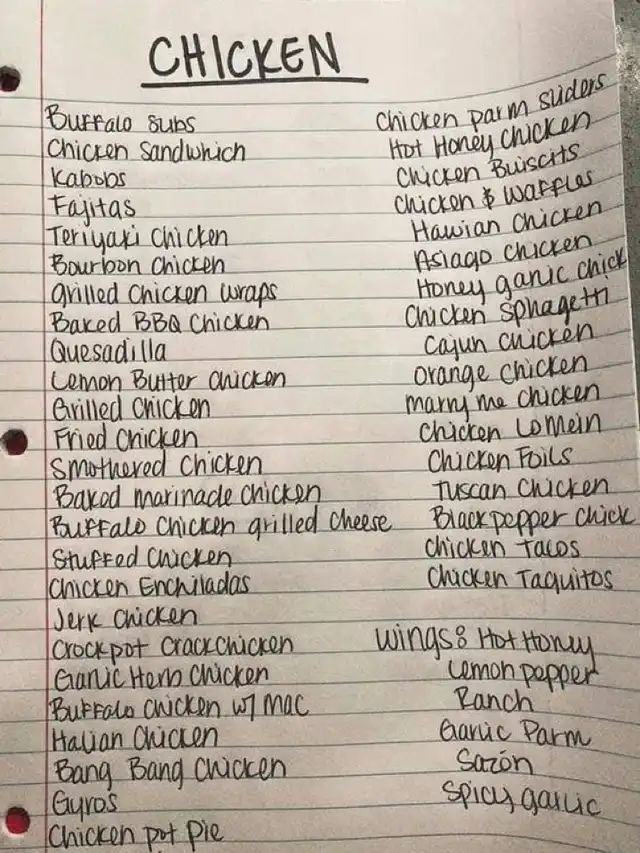 CHICKEN
Buffalo subs
Chicken Sandwhich
Kabobs
Fajitas
Teriyaki Chicken
Bourbon Chicken
Grilled Chicken wraps
Baked BBQ Chicken
Quesadilla
Lemon Butter Chicken
Grilled Chicken
Fried Chicken
Smothered Chicken
Baked marinade Chicken
Buffalo Chicken grilled cheese
Stuffed Chicken
Chicken Enchiladas
Jerk Chicken
Crockpot Crack Chicken
Garlic Herb Chicken
Buffalo Chicken w/ Mac
Italian Chicken
Bang Bang Chicken
Gyros
Chicken pot pie
Chicken parm sliders
Hot Honey Chicken
Chicken Buiscits
Chicken & Waffles
Hawian Chicken
Asiago Chicken
Honey garlic Chick
Chicken Sphagetti
Cajun Chicken
Orange Chicken
Marry me Chicken
Chicken Lo Mein
Chicken Foils
Tuscan Chicken
Black pepper Chick
Chicken Tacos
Chicken Taquitos
Wings: Hot Honey
Lemon pepper
Ranch
Garlic Parm
Sazón
Spicy garlic